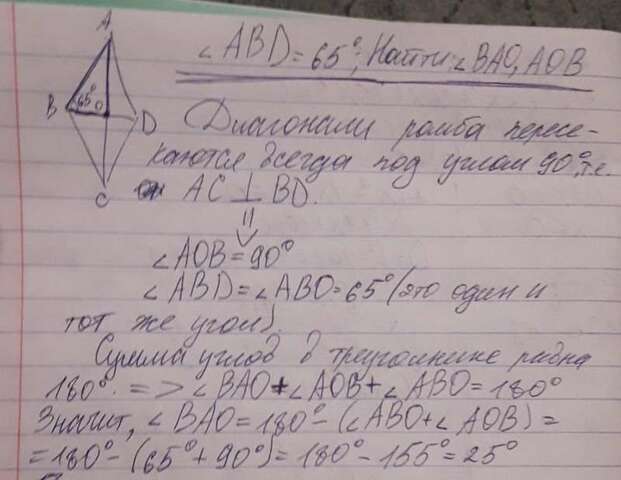 A
∠ABD = 65°; Найти: ∠BAO, AOB
B 65° O D
C
Диагонали ромба пересе-
каются всегда под углом 90°, т.е.
AC ⊥ BD.
⇓
∠AOB = 90°
∠ABD = ∠ABO = 65° (это один и
тот же угол).
Сумма углов в треугольнике равна
180°. => ∠BAO + ∠AOB + ∠ABO = 180°
Значит, ∠BAO = 180° - (∠ABO + ∠AOB) =
= 180° - (65° + 90°) = 180° - 155° = 25°